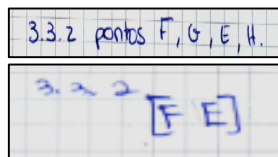 3.3.2 pontos F, G, E, H.
3.3.2 [F E]